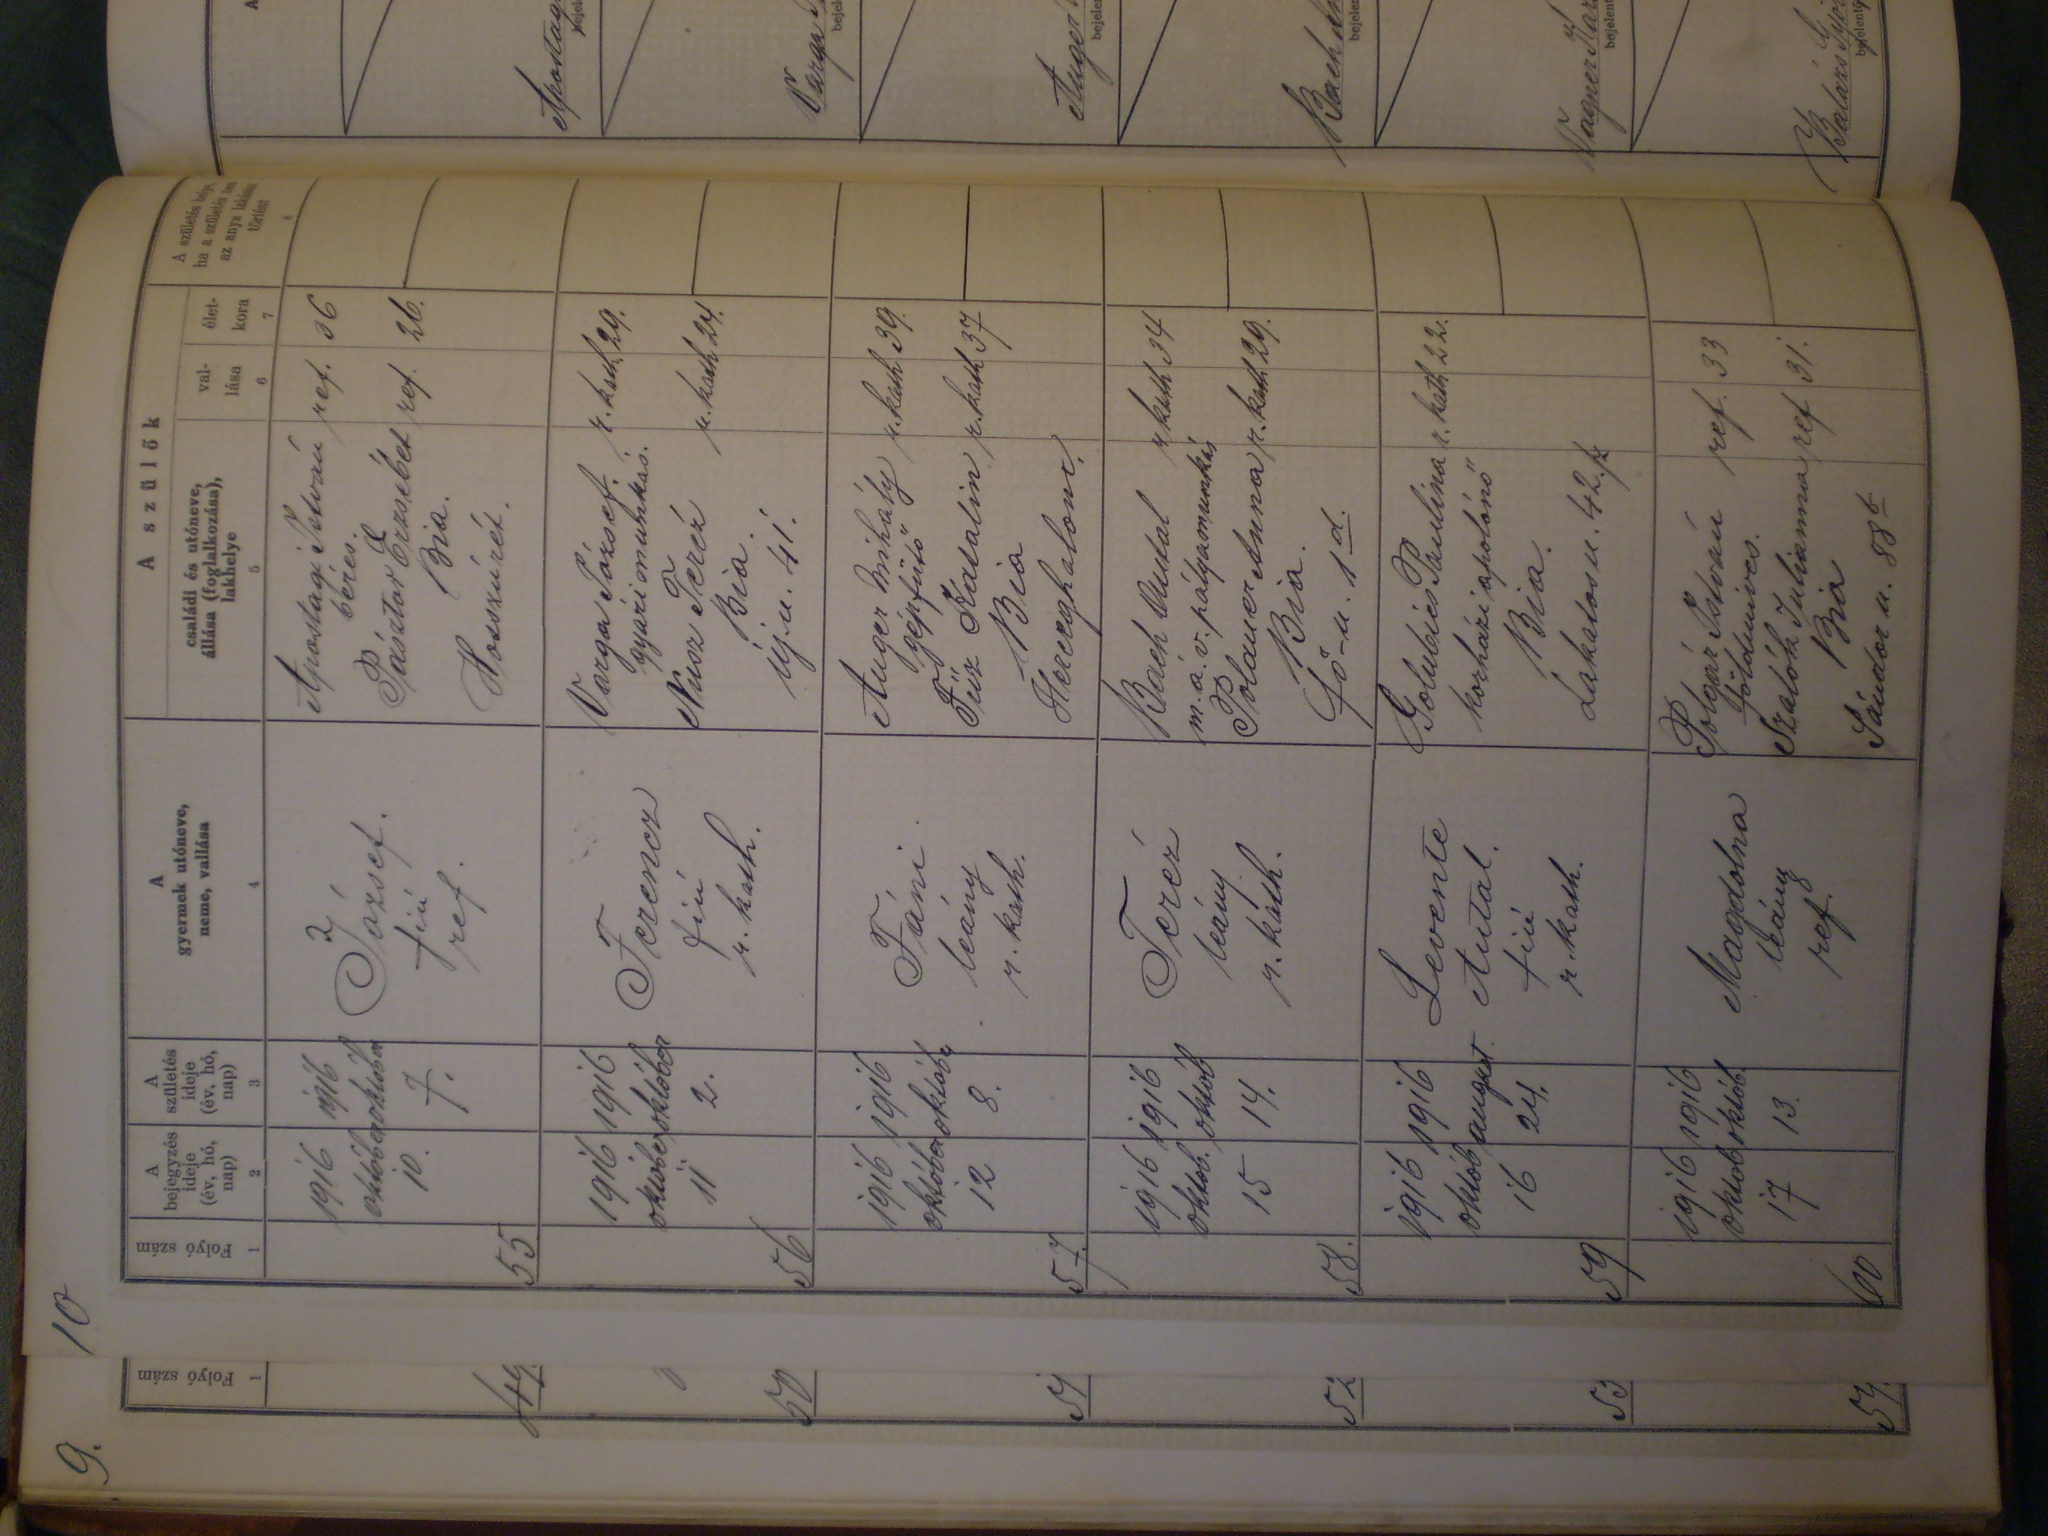 9.
10
Folyó szám
1
49.
50
51
52
53
54.
Folyó szám
1
A bejegyzés ideje (év, hó, nap)
2
A születés ideje (év, hó, nap)
3
A gyermek utóneve, neme, vallása
4
A szülők
családi és utóneve, állása (foglalkozása), lakhelye
5
val-
lása
6
élet-
kora
7
A születés helye, ha a születés nem az anya lakásán történt
8
55
1916
október
10.
1916
október
7.
József.
fiú
ref.
Apostagi István ref. 36
béres.
Pásztor Erzsébet ref. 26.
Bia.
Hosszúrét.
56
1916
október
11
1916
október
2.
Ferencz
fiú
r. kath.
Varga József. r. kath. 29.
gyári munkás.
Nusz Teréz r. kath 24.
Bia.
Új u. 41.
57.
1916
október
12
1916
október
8.
Fáni
leány
r. kath.
Auger Mihály r. kath 39.
gépfűtő
Füsz Katalin r. kath 37
Bia
Herczghalom.
58.
1916
októb.
15
1916
októb
14.
Teréz
leány
r. kath.
Bach Antal r kath 34
m.á.v. pályamunkás
Polauer Anna r. kath 29.
Bia.
Fő-u. 1 d.
59
1916
októb
16
1916
august.
24.
Levente
Antal.
fiú
r. kath.
Golubics Paulina r. kath 22.
korházi ápolónő
Bia.
Lakatos u. 42
60
1916
októb
17
1916
októb.
13.
Magdolna
leány
ref.
Polgár István ref. 33
földműves.
Szalók Julianna ref 31.
Bia
Sándor u. 88 b
A
Apostagi
bejelen
Varga
bejelen
Auger
bejelen
Bach
bejelen
Vagner
bejelen
Balázs
bejelentő